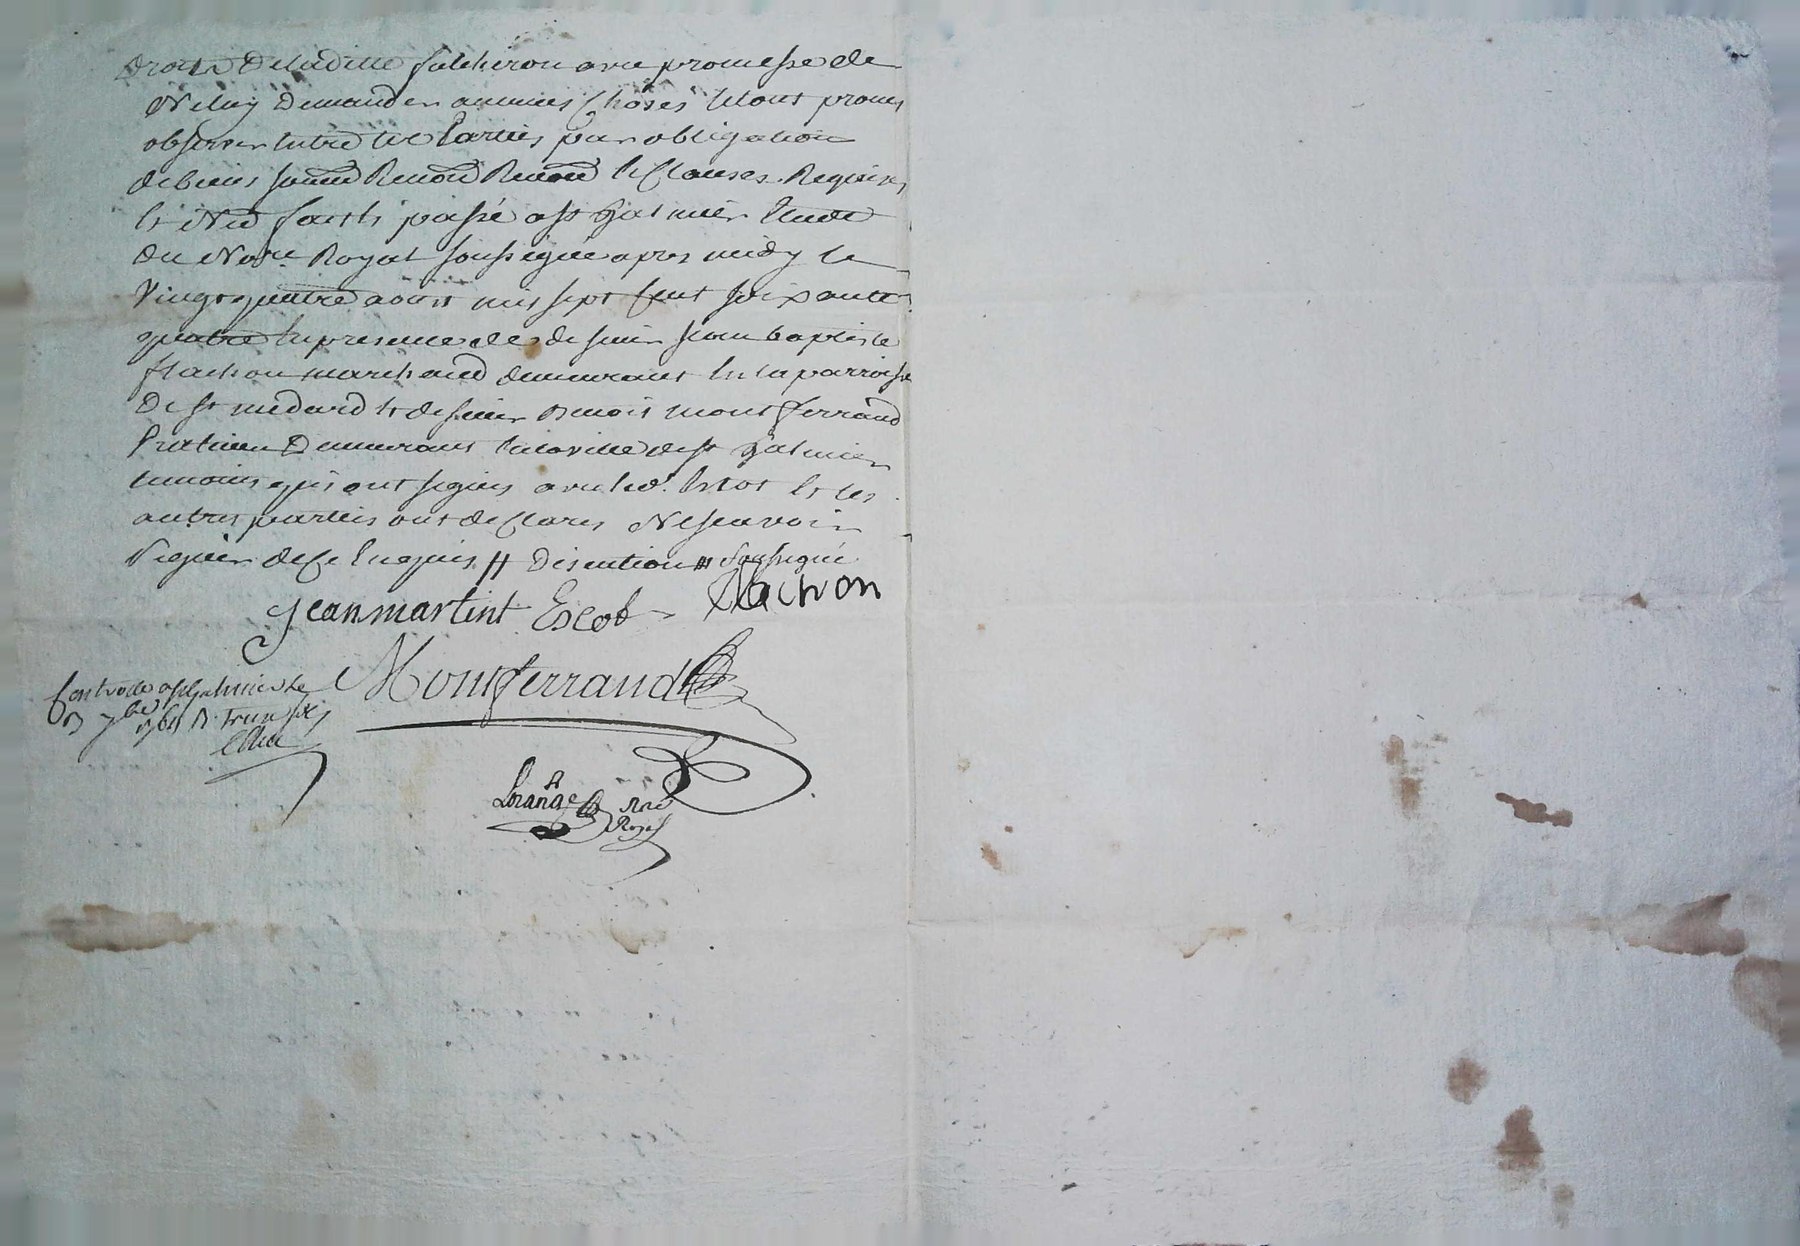 droits de laditte falcheron avec promesse de
Ne luy demander aucunes choses et ont promis
observer entre les parties par obligation
de biens soumis Renoncé Renoncé et clauses Requises
et Né fait et passé a st Galmier Etude
du Nore Royal soussigné apres midy le
vingt quatre aoust mil sept cent soixante
quatre En presence des de sieur jean baptiste
flachon marchand demeurant En la parroisse
de st medard et de sieur Benoit montferrand
praticien Demeurant En la ville de st Galmier
temoins qui ont signés avec led. Escot Et les
autres parties ont declarés Ne scavoir
signer de ce Enquis // soussigné
jean martint Escot flachon
Montferrand
Controlé a st galmier le
3 7bre 1764 R. Treize s
Lorange Nore
Royal